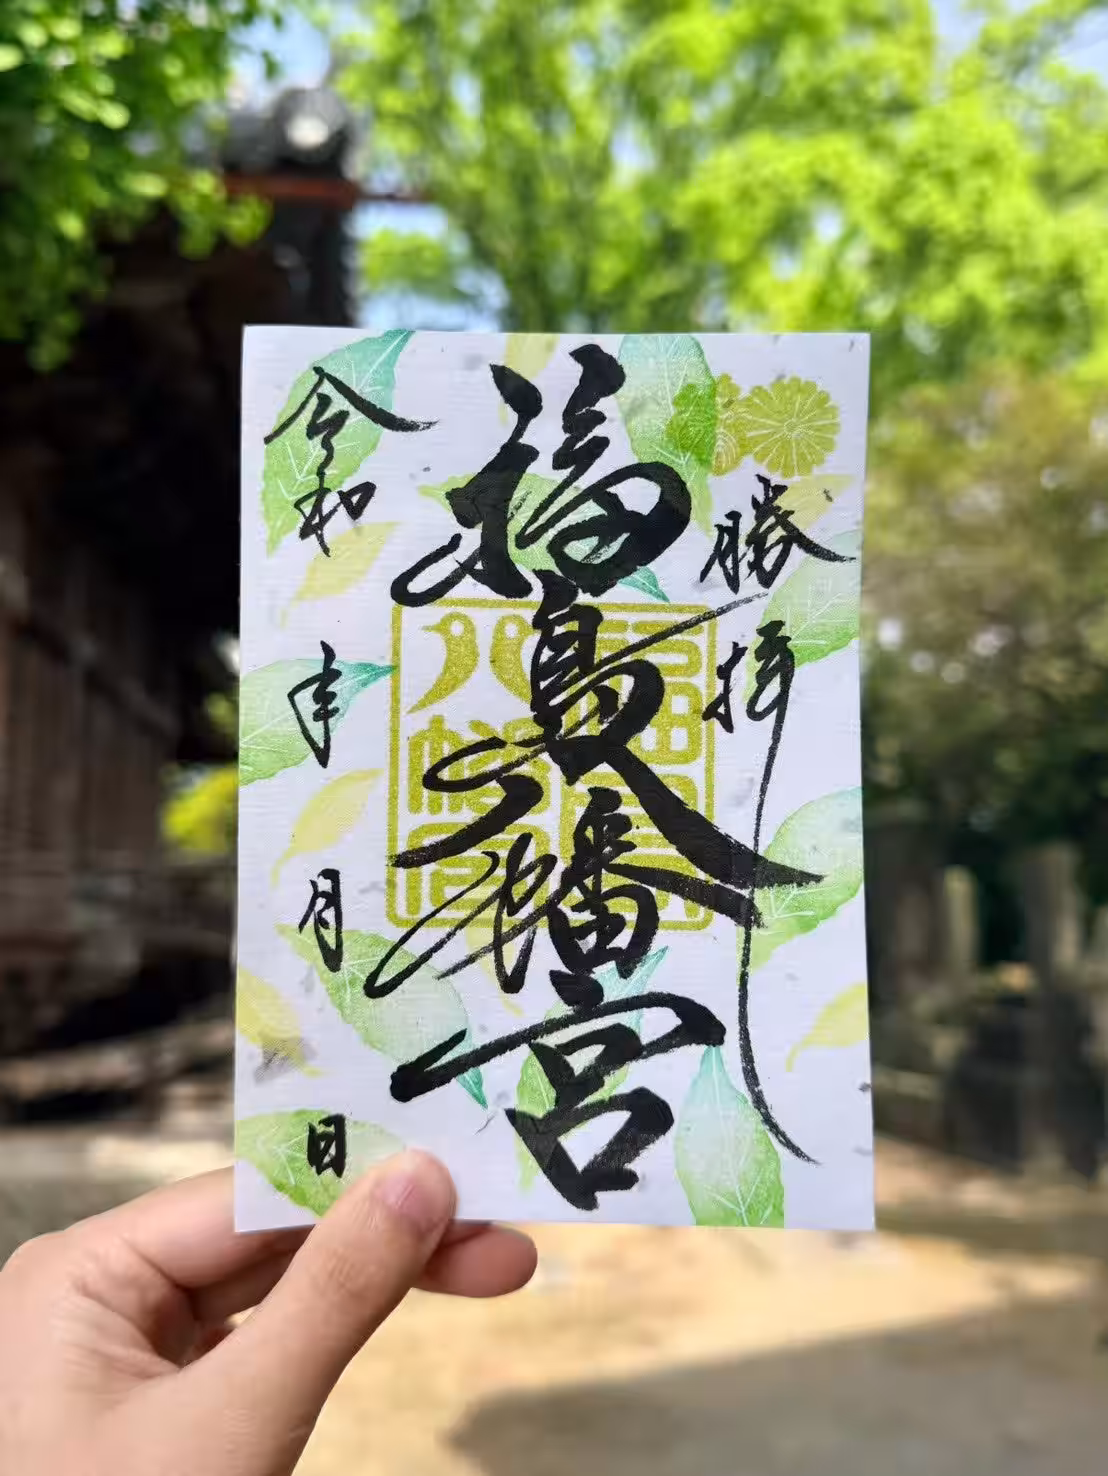 勝拝
福島八幡宮
八幡宮
令和 年 月 日